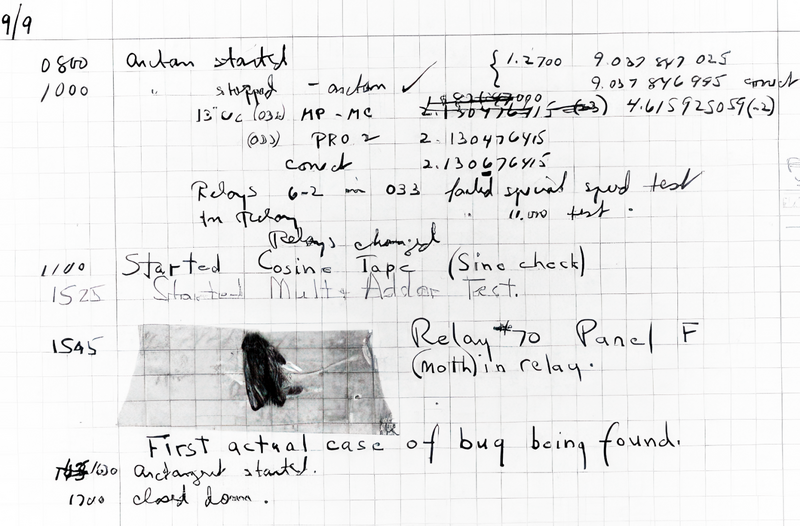 9/9
0800 Antan started { 1.2700 9.037 847 025
1000 " stopped - antan ✓ 9.037 846 995 conect
13"uc (032) MP - MC 2.130476415 (-3) 4.615925059(-2)
(033) PRO 2 2.130476415
conect 2.130676415
Relays 6-2 in 033 failed special speed test
In Relay " 11.000 test .
Relays changed
1100 Started Cosine Tape (Sine check)
1525 Started Mult+ Adder Test.
1545 Relay #70 Panel F
(moth) in relay.
First actual case of bug being found.
1630 antangent started.
1700 closed down .